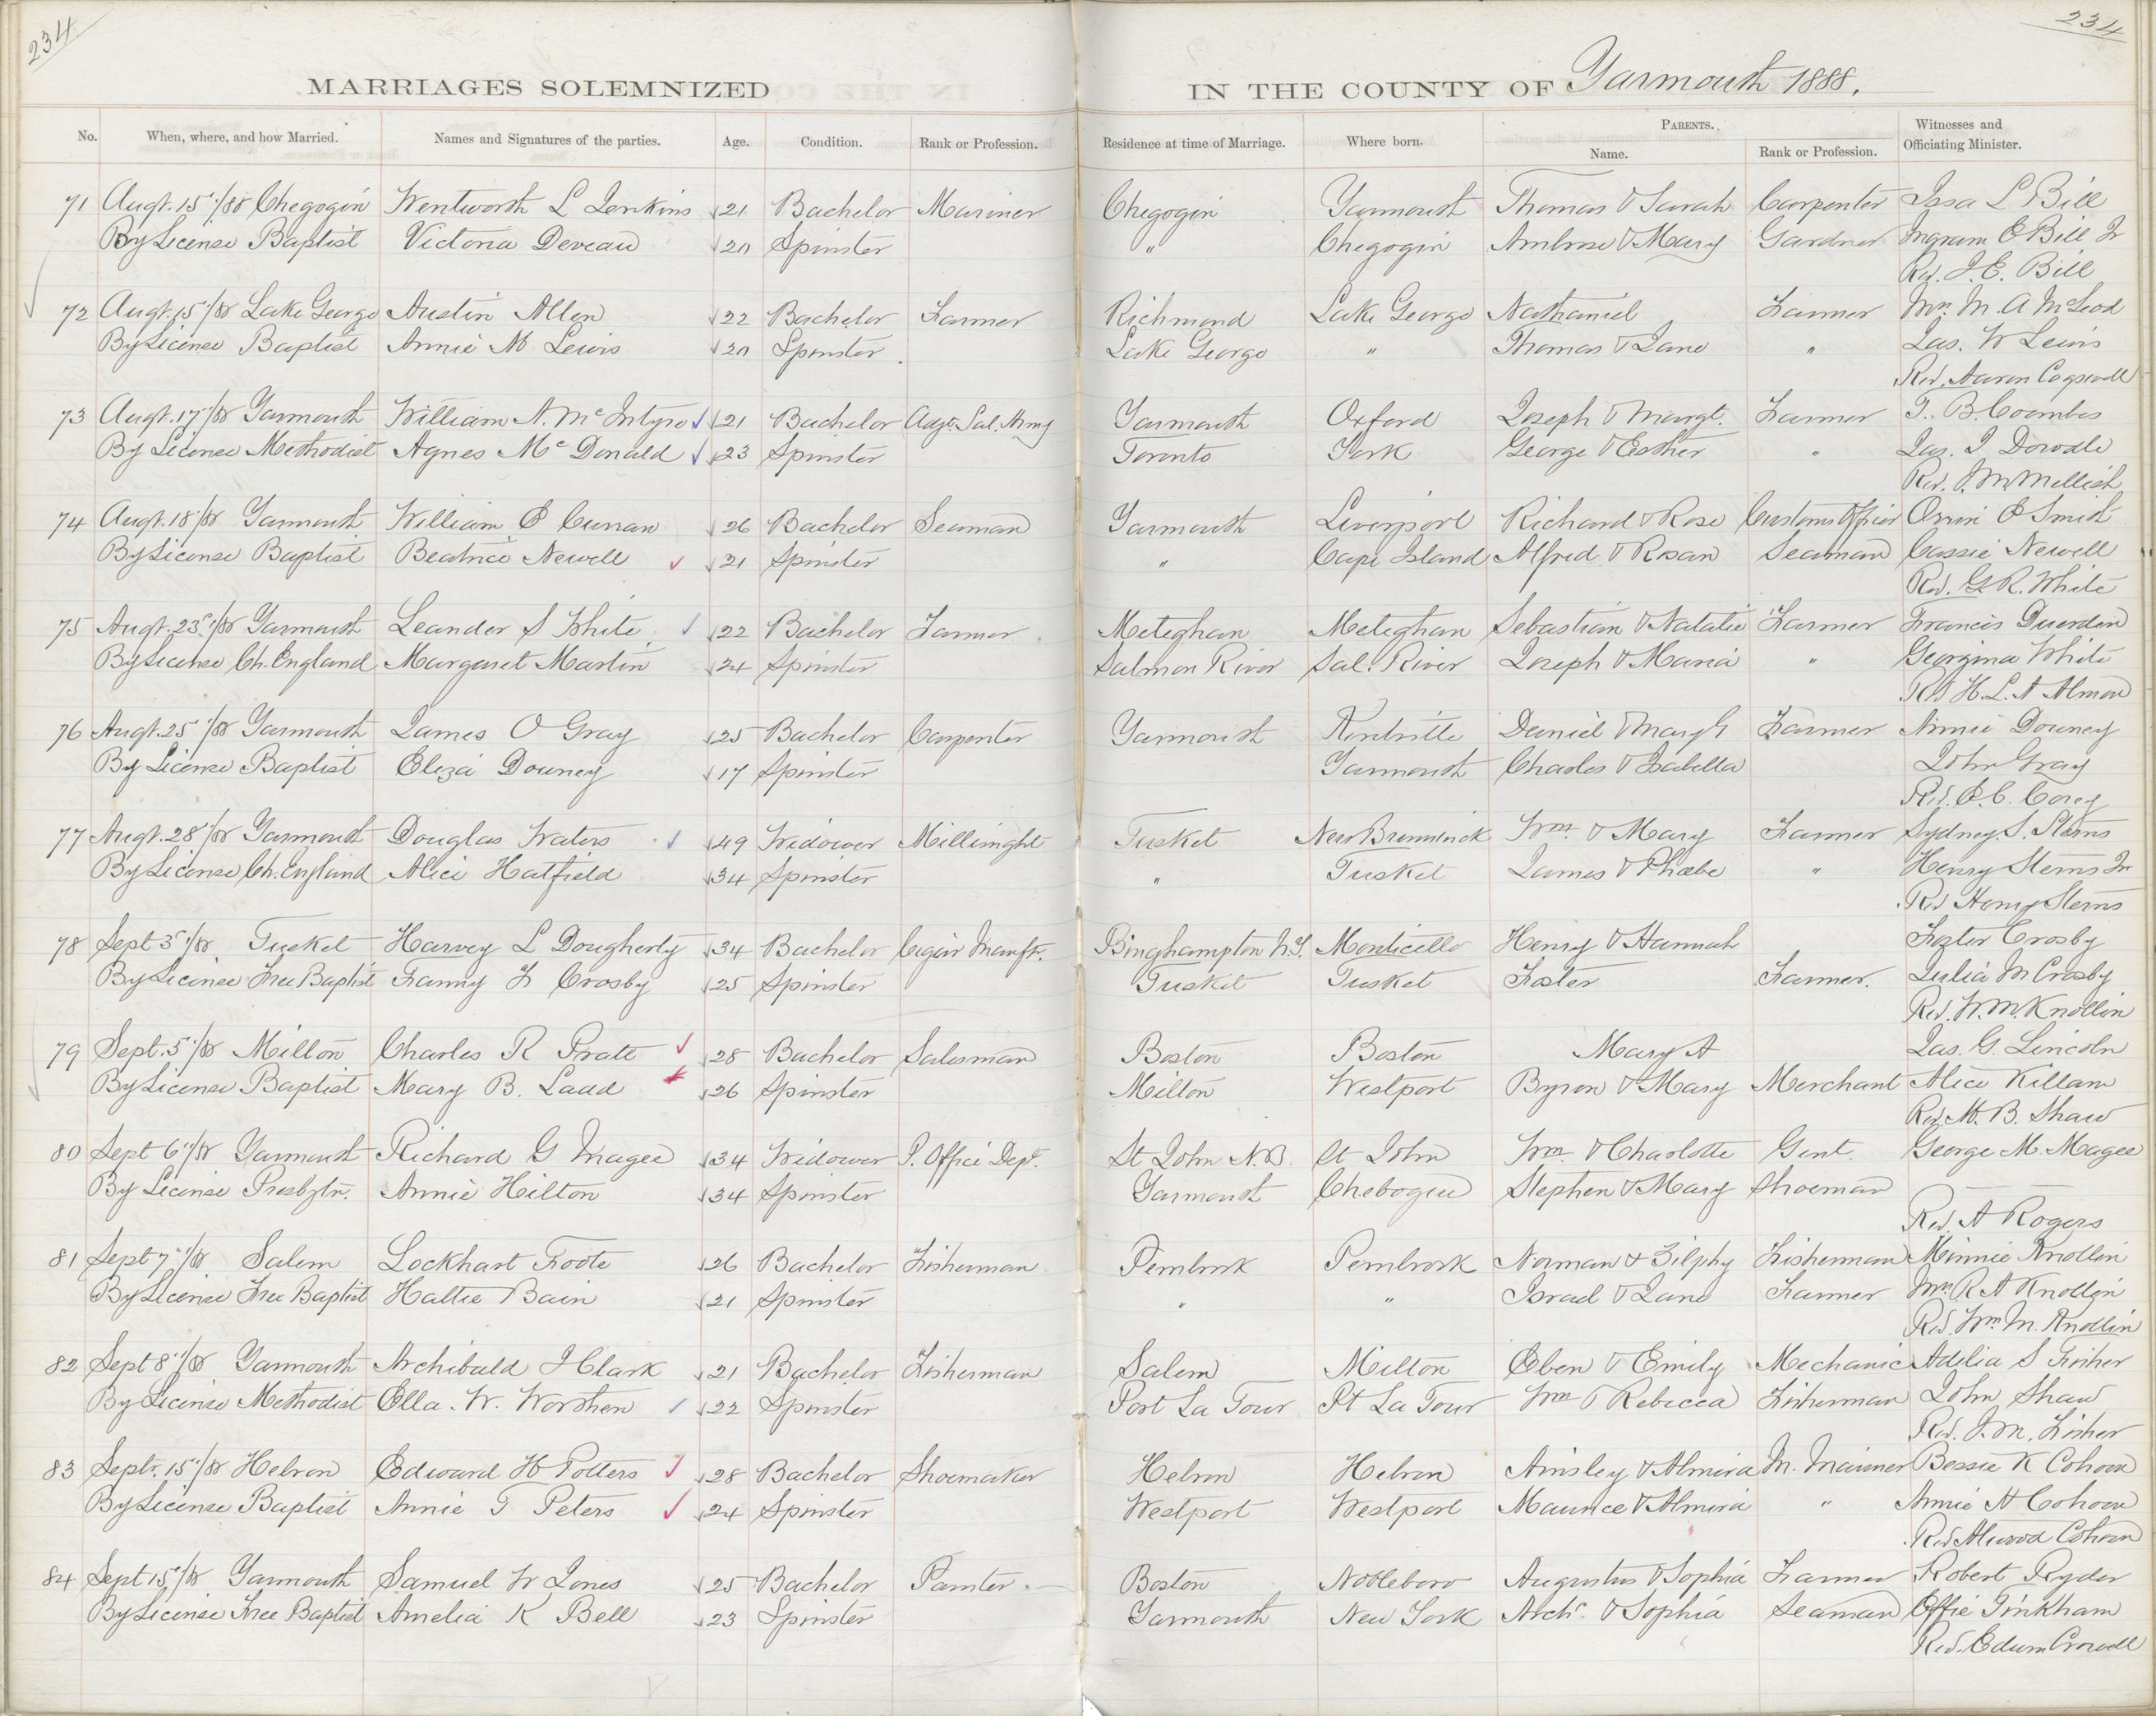 234
234
MARRIAGES SOLEMNIZED IN THE COUNTY OF Yarmouth 1888.
No. When, where, and how Married. Names and Signatures of the parties. Age. Condition. Rank or Profession. Residence at time of Marriage. Where born. PARENTS. Name. Rank or Profession. Witnesses and Officiating Minister.
71 Augt. 15/88 Chegogin Wentworth L Jenkins 21 Bachelor Mariner Chegogin Yarmouth Thomas & Sarah Carpenter L Bill
By License Baptist Victoria Deveau 20 Spinster " Chegogin Ambrose & Mary Gardner Ingram E Bill Jr
Rev. I. E. Bill
72 Augt. 15/88 Lake George Austin Allen 22 Bachelor Farmer Richmond Lake George Nathaniel Farmer Mrs. M. A McLeod
By License Baptist Annie M Lewis 20 Spinster Lake George " Thomas & Jane " Jas. W Lewis
Rev. Aaron Cogswell
73 Augt. 17/88 Yarmouth William A. McIntyre 21 Bachelor Adjt. Sal. Army Yarmouth Oxford Joseph & Margt. Farmer T. B. Coombs
By License Methodist Agnes McDonald 23 Spinster Toronto York George & Esther " Jas. J Dowdle
Rev. J. M. Mellish
74 Augt. 18/88 Yarmouth William P Curran 26 Bachelor Seaman Yarmouth Liverpool Richard & Rose Customs Officer Orrin E Smith
By License Baptist Beatrice Newell 21 Spinster " Cape Island Alfred & Rosan Seaman Cassie Newell
Rev. G. R. White
75 Augt. 23/88 Yarmouth Leander S White 22 Bachelor Farmer Meteghan Meteghan Sebastian & Natalie Farmer Francis Duerden
By License Ch. England Margaret Martin 24 Spinster Salmon River Sal. River Joseph & Maria " Georgina White
Rev H. L. A Almon
76 Augt. 25/88 Yarmouth James O Gray 25 Bachelor Carpenter Yarmouth Kentville Daniel & Mary G Farmer Annie Downey
By License Baptist Eliza Downey 17 Spinster Yarmouth Charles & Isabella John Gray
Rev. E. C. Corey
77 Augt. 28/88 Yarmouth Douglas Waters 49 Widower Millwright Tusket New Brunswick Wm. & Mary Farmer Sydney S. Sterns
By License Ch. England Alice Hatfield 34 Spinster " Tusket James & Phoebe " Henry Sterns Jr
Rev Henry Sterns
78 Sept 3/88 Tusket Harvey L Dougherty 34 Bachelor Cigar Manuftr. Binghampton N.Y. Monticello Henry & Hannah Foster Crosby
By License Free Baptist Fanny F Crosby 25 Spinster Tusket Tusket Foster Farmer. Julia M Crosby
Rev. W. M. Knollin
79 Sept. 5/88 Milton Charles R Pratt 28 Bachelor Salesman Boston Boston Mary A Jas. G. Lincoln
By License Baptist Mary B. Ladd 26 Spinster Milton Westport Byron & Mary Merchant Alice Killam
Rev. M. B. Shaw
80 Sept 6/88 Yarmouth Richard G Magee 34 Widower P. Office Dept. St John N.B. St John Wm. & Charlotte Gent. George M. Magee
By License Presbytn. Annie Hilton 34 Spinster Yarmouth Chebogue Stephen & Mary Shoeman
Rev. A Rogers
81 Sept 7/88 Salem Lockhart Foote 26 Bachelor Fisherman Pembrook Pembrook Norman & Zilphy Fisherman Minnie Knollin
By License Free Baptist Hattie Bain 21 Spinster " " Israel & Jane Farmer Mrs. R A Knollin
Rev. Wm M. Knollin
82 Sept 8/88 Yarmouth Archibald J Clark 21 Bachelor Fisherman Salem Milton Eben & Emily Mechanic Adelia S Fisher
By License Methodist Ella. W. Worthen 22 Spinster Port La Tour Pt La Tour Wm & Rebecca Fisherman John Shaw
Rev. J. M. Fisher
83 Septr. 15/88 Hebron Edward H Potters 28 Bachelor Shoemaker Hebron Hebron Ainsley & Almira M. Mariner Bessie K Cohoon
By License Baptist Annie T Peters 24 Spinster Westport Westport Maurice & Almira " Annie A Cohoon
Rev Atwood Cohoon
84 Sept 15/88 Yarmouth Samuel W Jones 25 Bachelor Painter. Boston Nobleboro Augustus & Sophia Farmer Robert Ryder
By License Free Baptist Amelia K Bell 23 Spinster Yarmouth New York Archd. & Sophia Seaman Effie Tinkham
Rev. Edwin Crowell